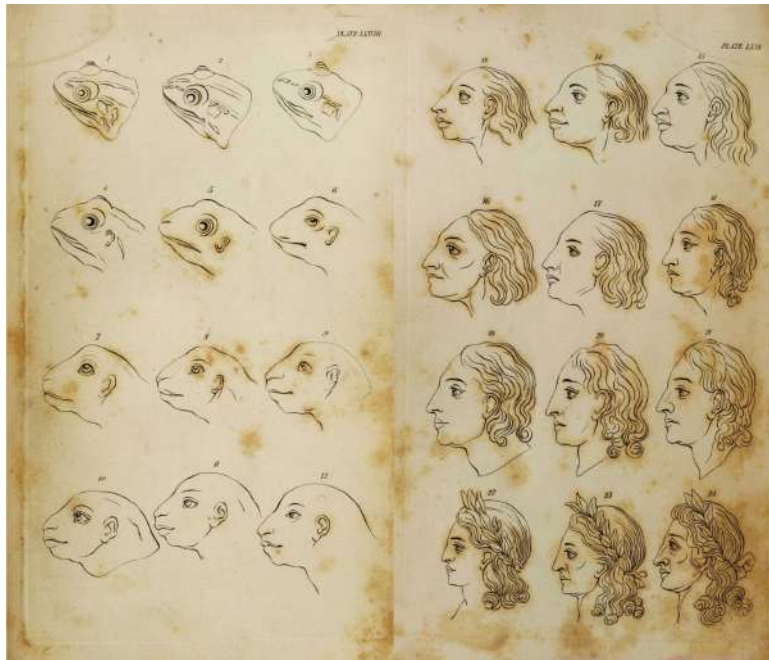 PLATE LXXVIII
1 2 3
4 5 6
7 8 9
10 11 12
13 14 15
16 17 18
19 20 21
22 23 24